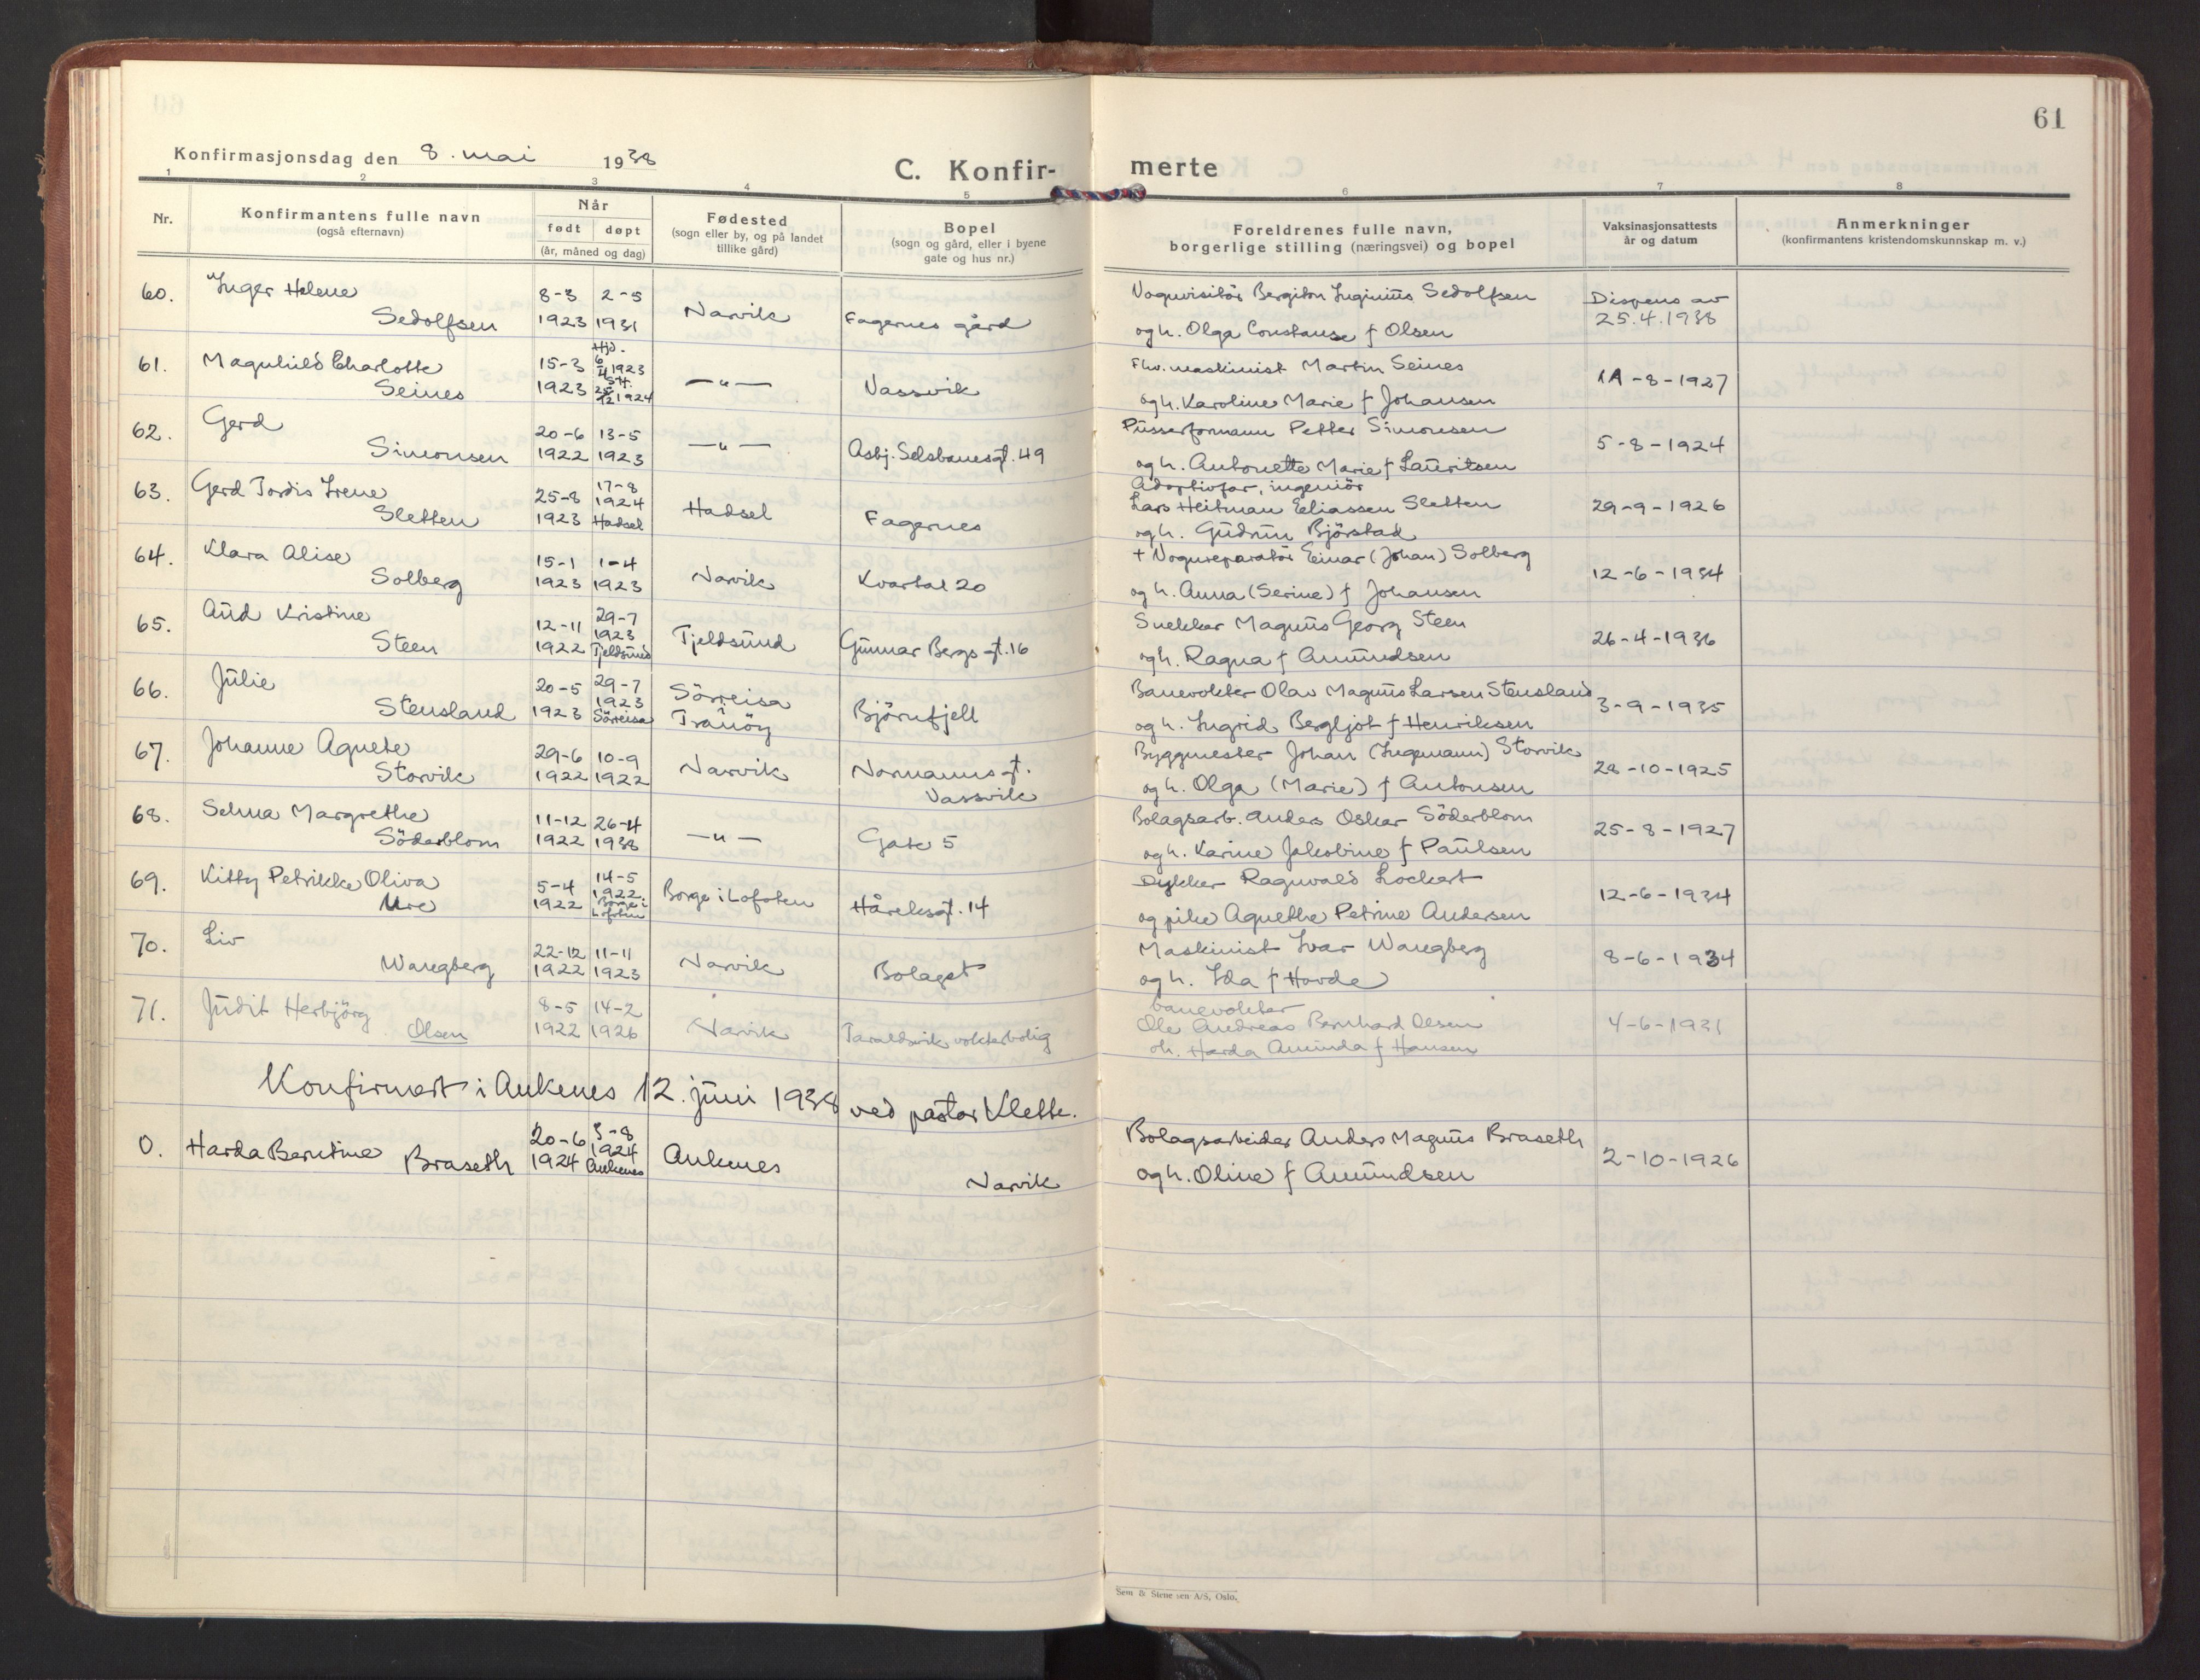 61
Konfirmasjonsdag den 8. mai 1938
C. Konfir- merte
1 2 3 4 5 6 7 8
Nr.
Konfirmantens fulle navn
(også efternavn)
Når
født døpt
(år, måned og dag)
Fødested
(sogn eller by, og på landet
tillike gård)
Bopel
(sogn og gård, eller i byene
gate og hus nr.)
Foreldrenes fulle navn,
borgerlige stilling (næringsvei) og bopel
Vaksinasjonsattests
år og datum
Anmerkninger
(konfirmantens kristendomskunnskap m. v.)
60. Inger Helene 8-3 2-5 Narvik Fagernes gård Vognvisitör Bergiton Inginius Sedolfsen Dispens av
Sedolfsen 1923 1931 og h. Olga Constanse f Olsen 25.4.1938
61. Magnhild Charlotte 15-3 Hjd. 6/4 1923 —"— Vassvik Fhv. maskinist Martin Seines 1A-8-1927
Seines 1923 St. 25/12 1924 og h. Karoline Marie f Johansen
62. Gerd 20-6 13-5 —"— Asbj. Selsbanesgt. 49 Pusserformann Petter Simonsen 5-8-1924
Simonsen 1922 1923 og h. Antonette Marie f Lauritsen
63. Gerd Tordis Irene 25-8 17-8 Hadsel Fagernes Adoptivfar, ingeniör
1924 Lars Heitman Eliassen Sletten 29-9-1926
Sletten 1923 Hadsel og h. Gudrun Björstad
64. Klara Alise 15-1 1-4 Narvik Kvartal 20 + Vognreparatör Einar (Johan) Solberg 12-6-1934
Solberg 1923 1923 og h. Anna (Serine) f Johansen
65. Aud Kristine 12-11 29-7 Tjeldsund Gunnar Bergs gt. 16 Snekker Magnus Georg Steen 26-4-1936
1923
Steen 1922 Tjeldsund og h. Ragna f Amundsen
66. Julie 20-5 29-7 Sörreisa Björnfjell Banevokter Olav Magnus Larsen Stensland 3-9-1935
1923
Stensland 1923 Sörreisa Tranöy og h. Ingrid Bergljot f Henriksen
67. Johanne Agnete 29-6 10-9 Narvik Normannsgt. Byggmester Johan (Ingemann) Storvik 28-10-1925
Storvik 1922 1922 Vassvik og h. Olga (Marie) f Antonsen
68. Selma Margrethe 11-12 26-4 —"— Gate 5 Bolagsarb. Anders Oskar Söderblom 25-8-1927
Söderblom 1922 1938 og h. Karine Jakobine f Paulsen
69. Kitty Petrikke Oliva 5-4 14-5 Borge i Lofoten Håreksgt. 14 Dykker Ragnvald Lockert 12-6-1934
1922
Ure 1922 Borge i Lofoten og pike Agnethe Petrine Andersen
70. Liv 22-12 11-11 Narvik Bolaget Maskinist Ivar Wangberg 8-6-1934
Wangberg 1922 1923 og h. Ida f Hovde
71. Judit Herbjörg 8-5 14-2 Narvik Taraldsvik vokterbolig banevokter
Olsen 1922 1926 Ole Andreas Bernhard Olsen 4-6-1931
oh. Harda Aminda f Hansen
Konfirmert i Ankenes 12. juni 1938 ved pastor Klette.
0. Harda Berntine Braseth 20-6 3-8 Ankenes Narvik Bolagsarbeider Anders Magnus Braseth 2-10-1926
1924
1924 Ankenes og h. Oline f Amundsen
Sem & Stenersen A/S, Oslo.